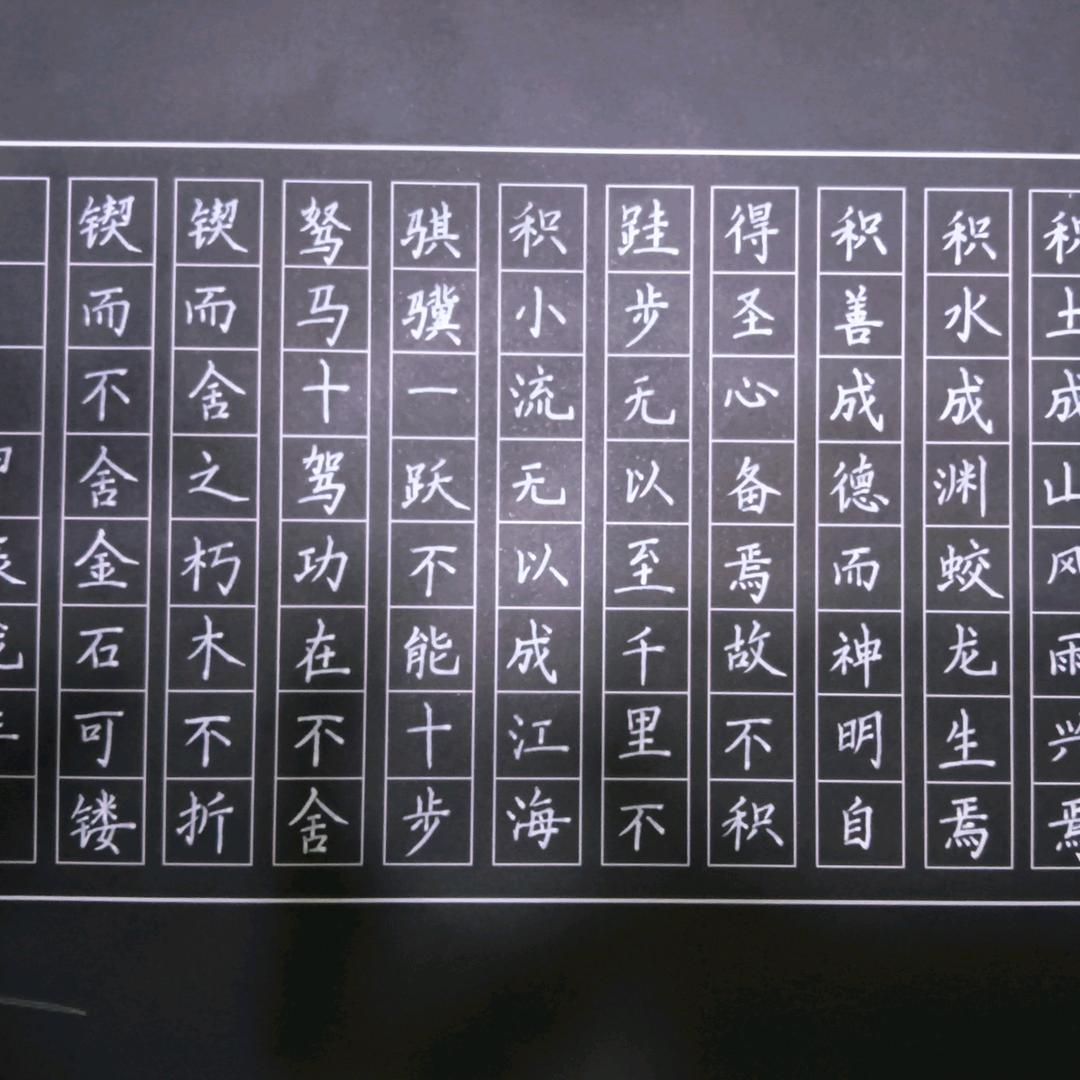 积土成山风雨兴焉
积水成渊蛟龙生焉
积善成德而神明自
得圣心备焉故不积
跬步无以至千里不
积小流无以成江海
骐骥一跃不能十步
驽马十驾功在不舍
锲而舍之朽木不折
锲而不舍金石可镂